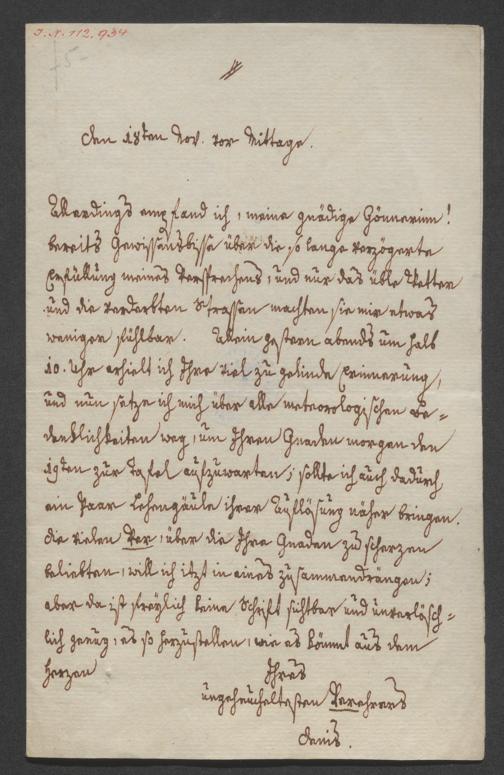 I.N. 112.934
den 18ten Nov. vor Mittage.
Allerdings empfand ich, meine gnädige Gönnerinn!
bereits Gewissensbisse über die so lange verzögerte
Erfüllung meines Versprechens, und nur das üble Wetter
und die verderbten Strassen machten sie mir etwas
weniger fühlbar. Allein gestern abends um halb
10. Uhr erhielt ich Ihre viel zu gelinde Erinnerung,
und nun setze ich mich über alle meteorologischen Be=
denklichkeiten weg, um Ihren Gnaden morgen den
19ten zur Tafel aufzuwarten; sollte ich auch dadurch
ein Paar Lehengäule ihrer Auflösung näher bringen.
die vielen Ver, über die Ihre Gnaden zu scherzen
beliebten, will ich itzt in eines zusammendrängen;
aber da ist freylich keine Schrift sichtbar und unverlösch=
lich genug, es so herzustellen, wie es kömmt aus dem
Herzen
Ihres
ungeheucheltesten Verehrers
Denis.